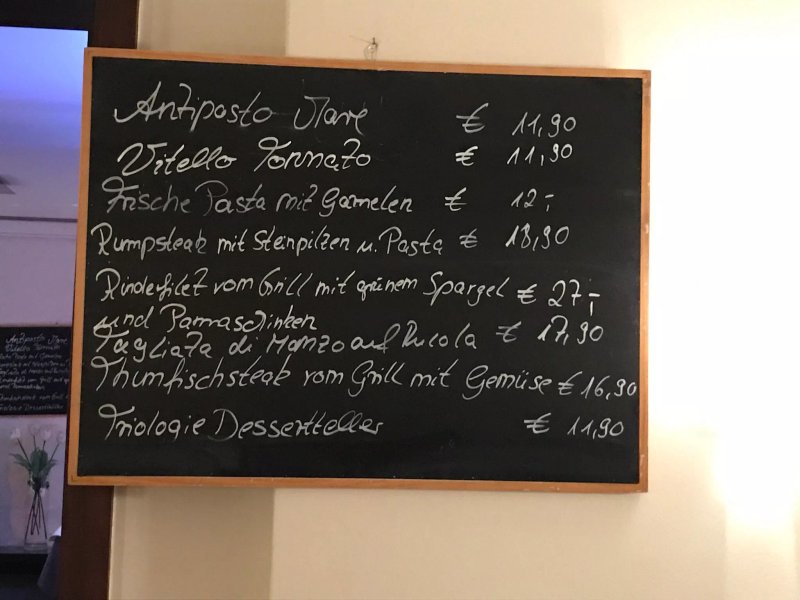 Antiposto Mare € 11,90
Vitello Tonnato € 11,90
Frische Pasta mit Gamelen € 12,-
Rumpsteak mit Steinpilzen u. Pasta € 18,90
Rinderfilet vom Grill mit grünem Spargel € 27,-
und Parmaschinken
Tagliata di Manzo auf Rucola € 17,90
Thumfischsteak vom Grill mit Gemüse € 16,90
Triologie Dessertteller € 11,90
Antiposto Mare
Vitello Tonnato